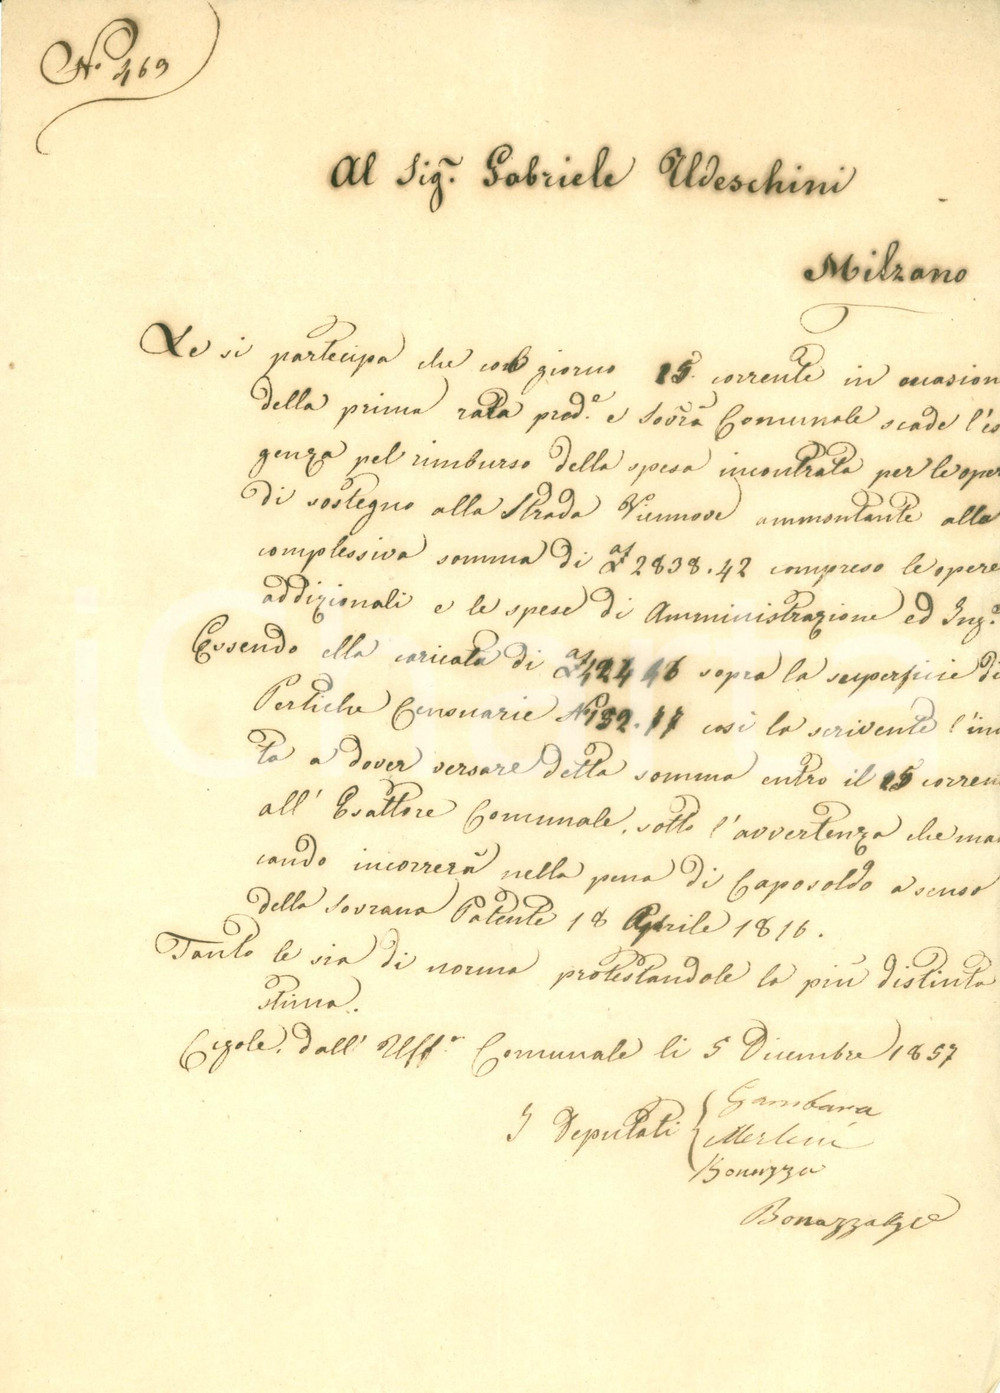 N.° 469
Al Sig.r Gabriele Uldeschini
Milzano
Le si partecipa che col giorno 15. corrente in occasion
della prima rata pred.e e Sovra Comunale scade l'es
genza pel rimburso della spesa incontrata per le oper
di sostegno alla Strada Viennove ammontante alla
complessiva somma di £ 2838.42 compreso le opere
addizionali e le spese di Amministrazione ed Ing.e
Essendo ella caricata di £ 424 46 sopra la superficie di
Pertiche Censuarie N° 132.77 così la scrivente l'in
ta a dover versare detta somma entro il 15 corren
all' Esattore Comunale, sotto l'avvertenza che man
cando incorrerà nella pena di Caposoldo a senso
della Sovrana Patente 18 Aprile 1816.
Tanto le sia di norma protestandole la più distinta
stima.
Cigole, dall' Uff.o Comunale li 5 Dicembre 1857
I Deputati Gambara
Merlini
Bonazza
Bonazza